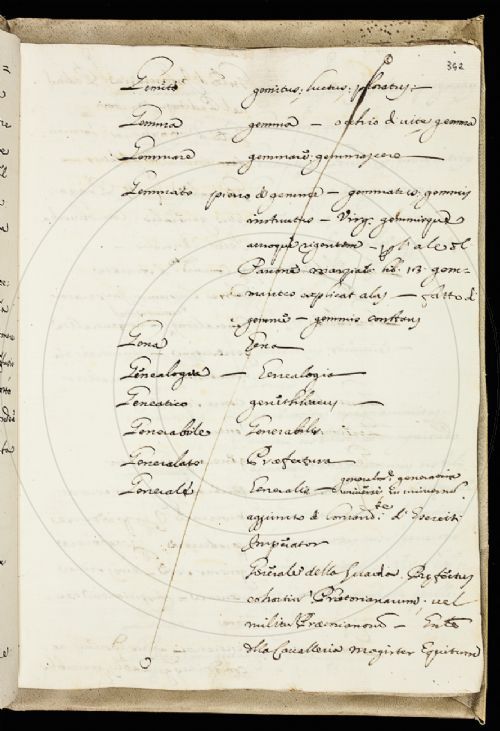 362
Gemito gemitus, luctus, ploratus, —
Gemma gemma — occhio di vite gemma
Gemmare — gemmare, gemmascere —
Gemmato pieno di gemme — gemmatus, gemmis
instructus — Virg. gemmisque
auroque rigentem — l'ale del
Pavone Martial. lib. 113. gem-
manteis explicat alas — fatto di
gemme — gemmeus
Gena Gena —
Genealogia — Genealogia —
Geneatico. genethliacus —
Generabile Generabilis.
Generalato Præfectura
Generale Generalis —
universus in universum
aggiunto di d'Eserciti
Imperator
Generale della Guardia. Præfectus
cohortis Prætorianarum. vel
militum Prætorianorum —
della Cavalleria Magister Equitum